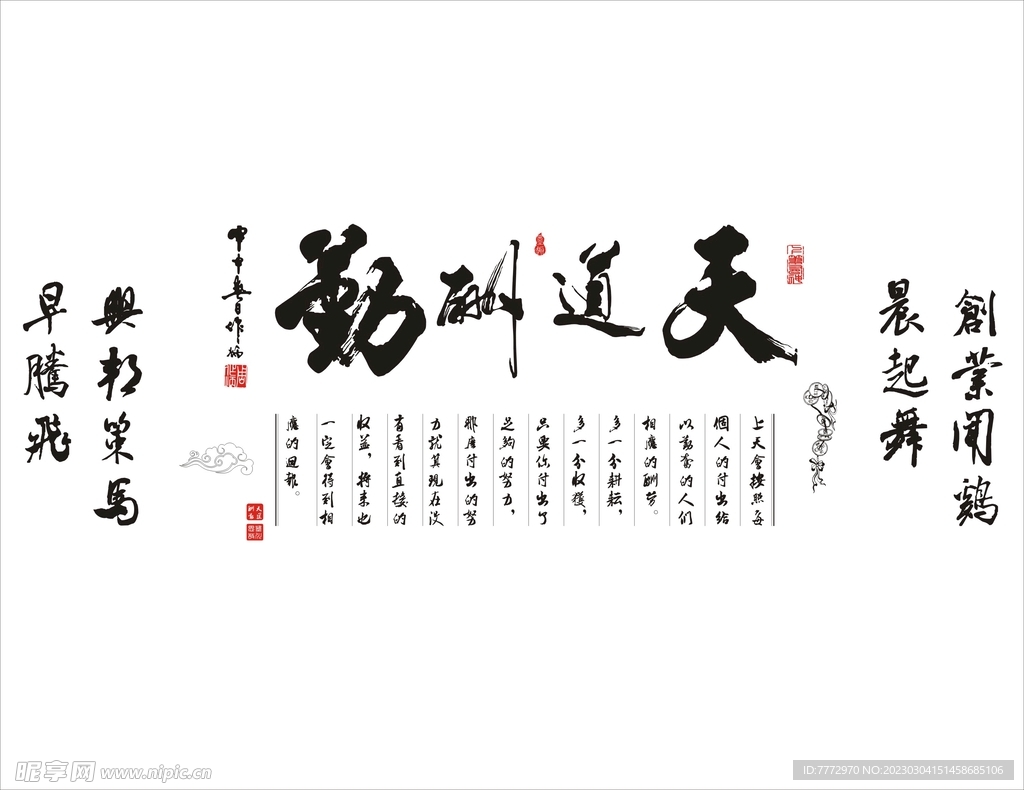 創業聞鷄
晨起舞
天道酬勤
上天會按照每
個人的付出給
以勤奮的人們
相應的酬勞。
多一分耕耘，
多一分收獲，
只要你付出了
足夠的努力，
那應付出的努
力就算現在没
有看到直接的
收益，將來也
一定會得到相
應的回報。
天道酬勤
興邦策馬
早騰飛
昵享网 www.nipic.cn
ID:7772970 NO:20230304151458685106